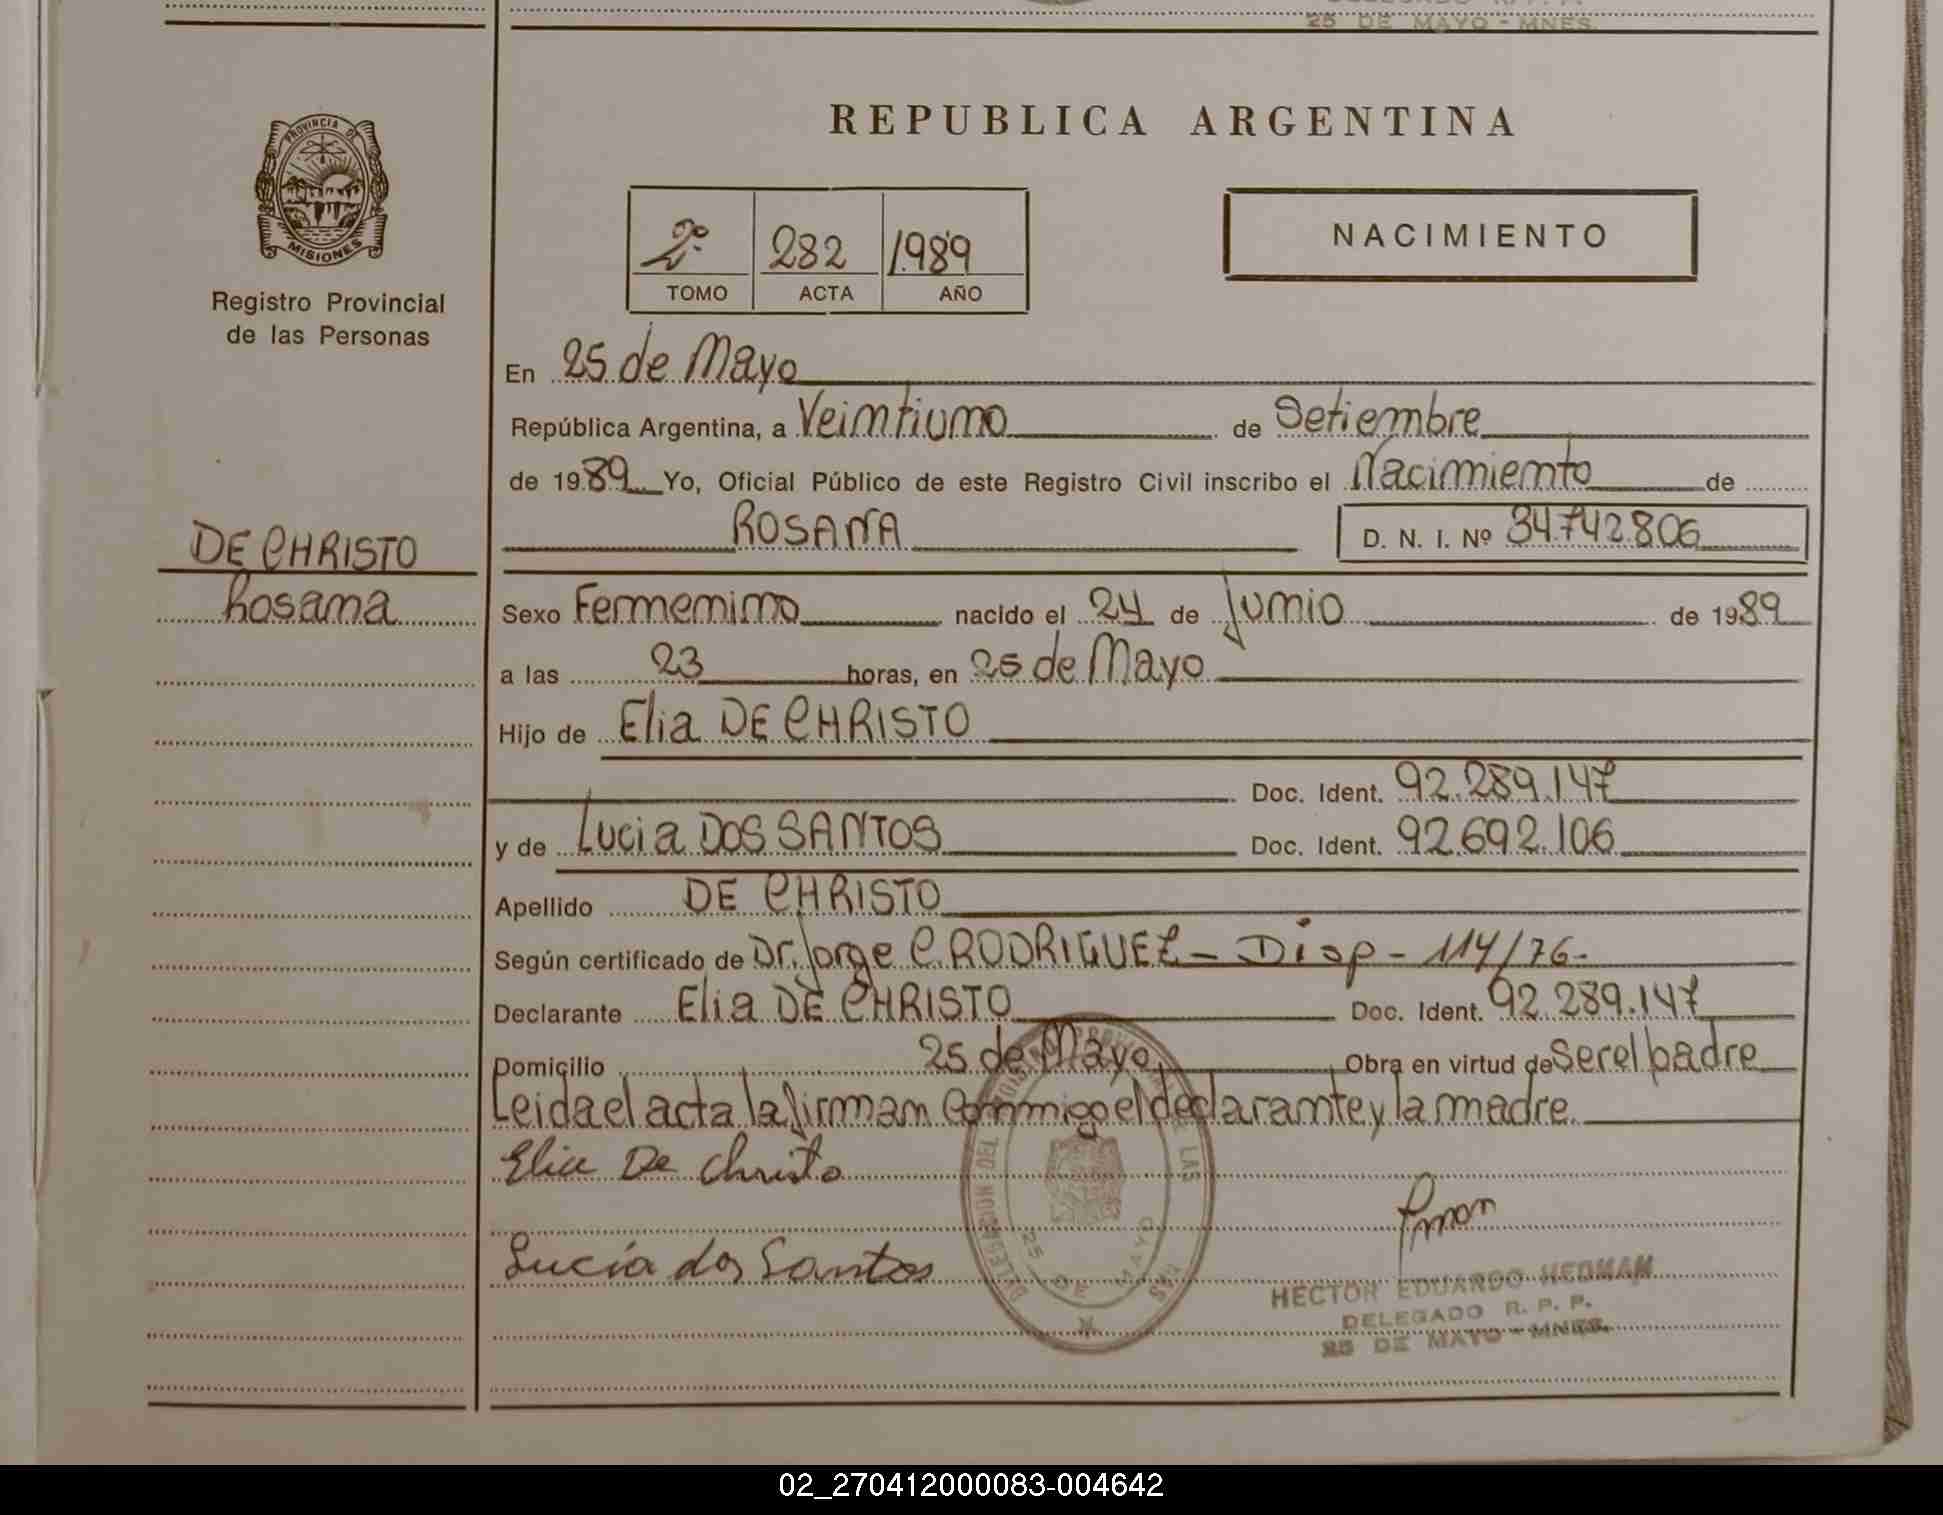 25 DE MAYO - MNES.
REPUBLICA ARGENTINA
PROVINCIA DE
MISIONES
Registro Provincial
de las Personas
2º 282 1989
TOMO ACTA AÑO
NACIMIENTO
En 25 de Mayo
República Argentina, a Veintiuno de Setiembre
de 1989 Yo, Oficial Público de este Registro Civil inscribo el Nacimiento de
ROSANA D. N. I. Nº 34.742.806
DE CHRISTO
Rosana
Sexo Femmenino nacido el 24 de Junio de 1989
a las 23 horas, en 25 de Mayo
Hijo de Elia DE CHRISTO
Doc. Ident. 92.289.147
y de Lucia DOS SANTOS Doc. Ident. 92.692.106
Apellido DE CHRISTO
Según certificado de Dr. Jorge C. RODRIGUEZ - Disp - 114/76-
Declarante Elia DE CHRISTO Doc. Ident. 92.289.147
Domicilio 25 de Mayo Obra en virtud de Ser el padre
Leida el acta la firman Conmigo el declarante y la madre.
Elia De Christo
Lucía dos Santos
25 DE MAYO
HECTOR EDUARDO HEDMAN
DELEGADO R. P. P.
25 DE MAYO - MNES.
02_270412000083-004642